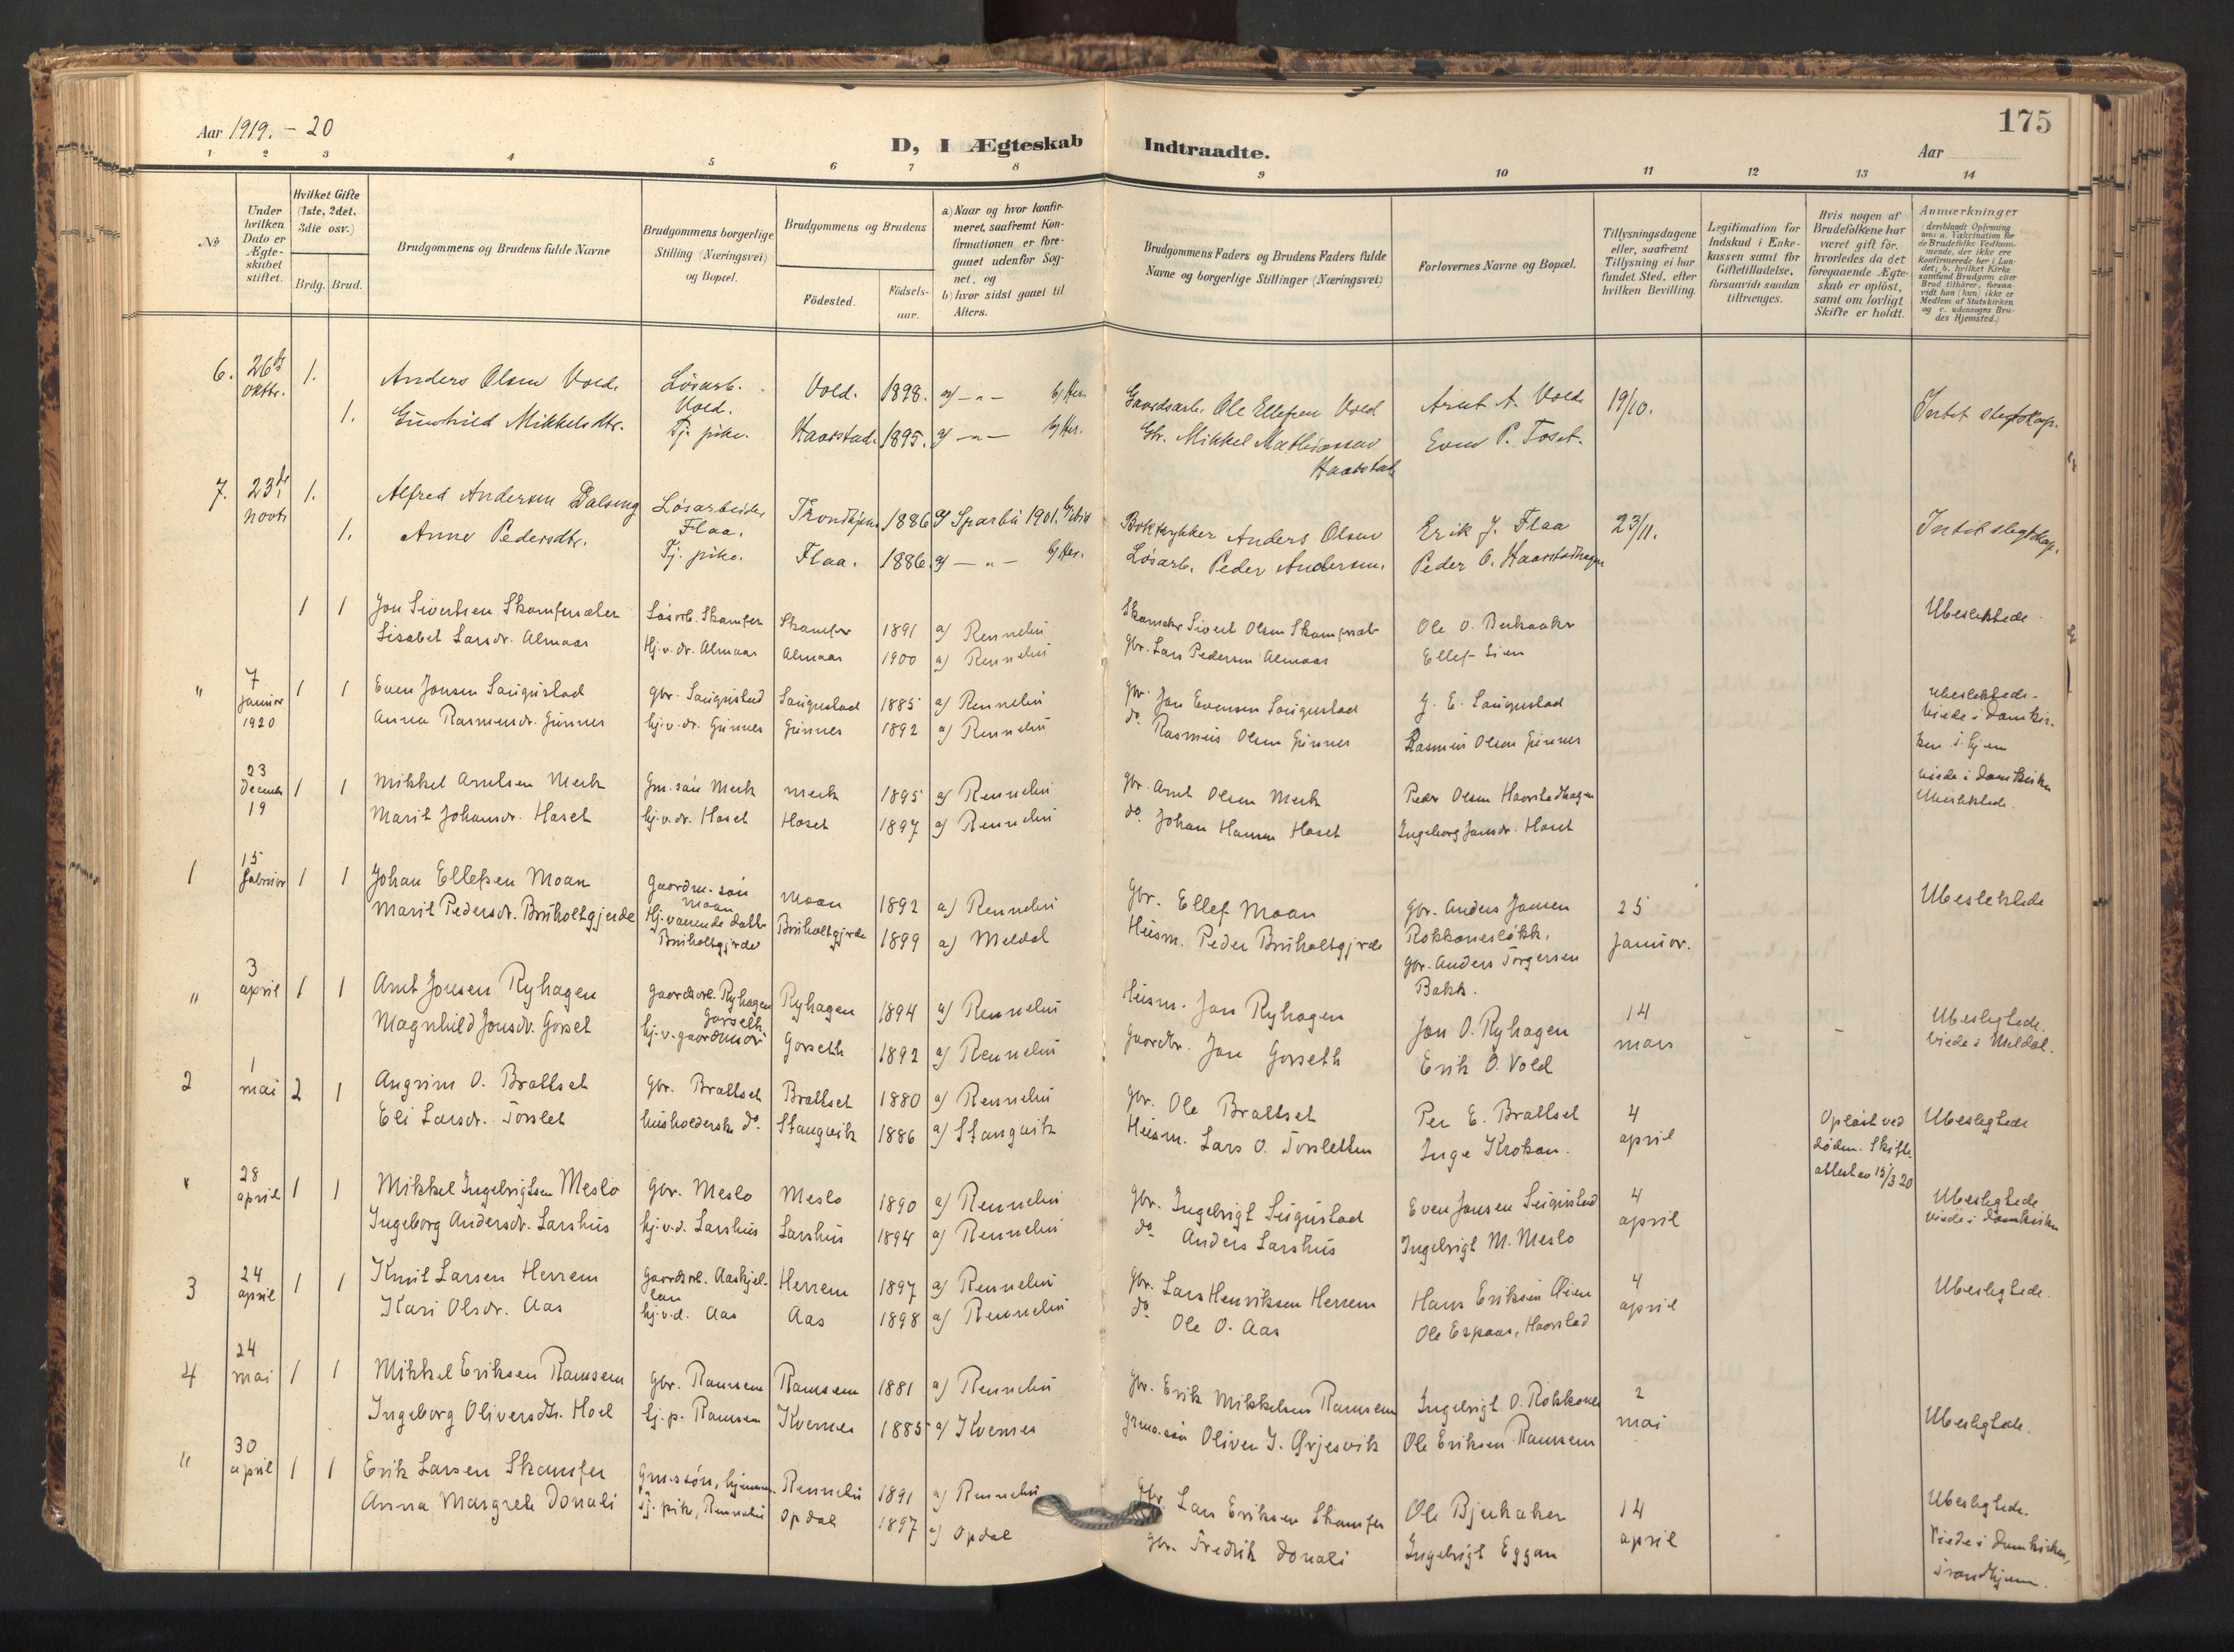 Aar 1919. - 20
D, I Ægteskab Indtraadte.
175
Aar
1 2 3 4 5 6 7 8 9 10 11 12 13 14
No
Under hvilken Dato er Ægteskabet stiftet.
Hvilket Gifte (1ste, 2det, 3die osv.)
Brdg. Brud.
Brudgommens og Brudens fulde Navne
Brudgommens borgerlige Stilling (Næringsvei) og Bopæl.
Brudgommens og Brudens
Fødested.
Fødselsaar.
a) Naar og hvor konfirmeret, saafremt Konfirmationen er foregaaet udenfor Sognet, og
b) hvor sidst gaaet til Alters.
Brudgommens Faders og Brudens Faders fulde Navne og borgerlige Stillinger (Næringsvei)
Forlovernes Navne og Bopæl.
Tillysningsdagene eller, saafremt Tillysning ei har fundet Sted, efter hvilken Bevilling.
Legitimation for Indskud i Enkekassen samt for Giftetilladelse, forsaavidt saadan tiltrænges.
Hvis nogen af Brudefolkene har været gift før, hvorledes da det foregaaende Ægteskab er opløst, samt om lovligt Skifte er holdt.
Anmærkninger
6. 26de oktbr. 1. Anders Olsen Vold. Løsarb. Vold. Vold. 1898. a) - " - b) Her. Gaardsarb. Ole Ellefsen Vold Arnt A. Vold 19/10. Intet slegtskap.
1. Gunhild Mikkelsdtr. Tj. pike. Haarstad. 1895. a) - " - b) Her. Gbr. Mikkel Mathiassen Haarstad Even P. Toset.
7. 23de novbr. 1. Alfred Andersen Dalseng Løsarbeider Flaa. Trondhjem 1886 a) Sparbu 1901. Boktrykker Anders Olsen Erik J. Flaa 23/11. Intet slegtskap.
1. Anne Pedersdtr. Tj. pike. Flaa. 1886. a) - " - b) Her. Løsarb. Peder Andersen. Peder O. Haarstadhagen
1 1 Jon Sivertsen Skamfersæter Løsarb. Skamfer Skamfer 1891 a) Rennebu Sivert Olsen Ole O. Berkaaker Ubeslektede
Lisabet Larsdr. Almaas Hj.v.dr. Almaas Almaas 1900 a) Rennebu gbr. Lars Pedersen Almaas Ellef Lien
" 7 januar 1920 1 1 Even Jonsen Saugustad gbr. Saugustad Saugustad 1885 a) Rennebu gbr. Jon Evensen Saugustad G. E. Saugustad Ubeslektede. Viede i domkir-
Anna Rasmusdr. Gunnes hj.v.dr. Gunnes Gunnes 1892 a) Rennebu do. Rasmus Olsen Gunnes Rasmus Olsen Gunnes
23 decembr 19 1 1 Mikkel Arntsen Merk Gm. søn Merk Merk 1895 a) Rennebu gbr. Arnt Olsen Merk Peder Olsen Haarstadhagen Viede i domkirken
Marit Johansdr. Hoset hj.v.dr. Hoset Hoset 1897 a) Rennebu do. Johan Hansen Hoset Ingeborg Jonsdr. Hoset Ubeslektede.
1 15 februar 1 1 Johan Ellefsen Moan Gaardm. søn Moan Moan 1892 a) Rennebu Gbr. Ellef Moan Gbr. Anders Jonsen Rokkonesløkk. 25 januar. Ubeslektede
Marit Pedersdr. Bruholtgjerde Hj. værende datt. Bruholtgjerde Bruholtgjerde 1899 a) Meldal Husm. Peder Bruholtgjerde Gbr. Anders Torgersen Bakk.
" 3 april 1 1 Arnt Jonsen Ryhagen Gaardsarb. Ryhagen Ryhagen 1894 a) Rennebu Husm. Jon Ryhagen Jon O. Ryhagen 14 mars - - Ubeslegtede. Viede i Meldal.
Magnhild Jonsdr. Gorset Gorseth Gorseth 1892 a) Rennebu Gaardbr. Jon Gorseth Erik O. Vold
2 1 mai 2 1 Angrim O. Brattset Gbr. Brattset Brattset 1880 a) Rennebu Gbr. Ole Brattset Per E. Brattset 4 april Opløst ved døden. Skifteattest av 15/3 20 Ubeslegtede
Eli Larsdr. Torslet husholderske do. Stangvik 1886 a) Stangvik Husm. Lars O. Torsletten Inge Krokan.
" 28 april 1 1 Mikkel Ingebrigtsen Meslo Gbr. Meslo Meslo 1890 a) Rennebu Gbr. Ingebrigt Sugustad Even Jonsen Sugustad 4 april Ubeslegtede Viede i domkirken
Ingeborg Andersdr. Larshus hj.v.d. Larshus Larshus 1894 a) Rennebu do Anders Larshus Ingebrigt M. Meslo
3 24 april 1 1 Knut Larsen Herrem Gaardsarb. Aaskjel- Herrem 1897 a) Rennebu Gbr. Lars Henriksen Herrem Hans Eriksen Øien 4 april Ubeslegtede.
Kari Olsdr. Aas hj.v.d. Aas Aas 1898 a) Rennebu do Ole O. Aas Ole Espaas, Haarstad
4 24 mai 1 1 Mikkel Eriksen Ramsem Gbr. Ramsem Ramsem 1881 a) Rennebu Gbr. Erik Mikkelsen Ramsem Ingebrigt O. Rokkones 2 mai Ubeslegtede.
Ingeborg Oliversdtr. Hoel hj.p. Ramsem Kvernes 1885 a) Kvernes Oliver J. Ørjesvik Ole Eriksen Ramsem
" 30 april 1 1 Erik Larsen Skamfer Gm.søn, hjemm. Rennebu 1891 a) Rennebu Gbr. Lars Eriksen Skamfer Ole Bjerkaker 14 april Ubeslegtede. Viede i Domkirken, Trondhjem.
Anna Margrete Donali Tj. pike, Rennebu Opdal 1897 a) Opdal Gbr. Fredrik Donali Ingebrigt Eggan